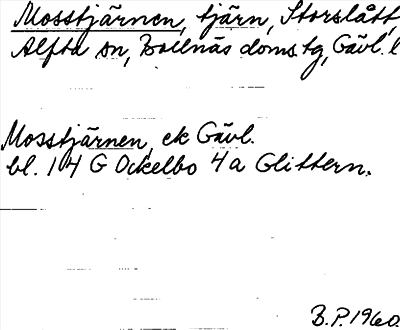 Mosstjärnen, tjärn, Storslått,
Alfta sn, Bollnäs doms.tg, Gävl. l
Mosstjärnen, ek Gävl.
bl. 14 G Ockelbo 4a Glittern.
B.P. 1960.